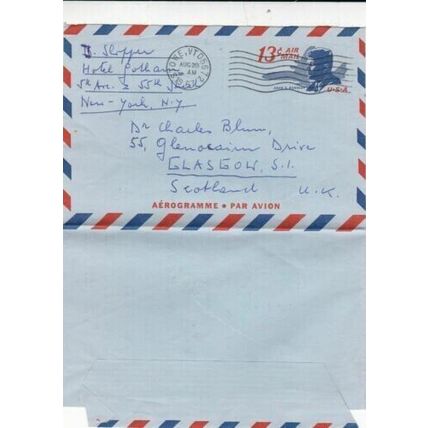 J. Slopper
Hotel Gotham
5th Ave. & 55th Street
New-York, N.Y.
AUG 20
AM
13¢ AIR
MAIL
JOHN F. KENNEDY
U·S·A
Dr Charles Blum,
55, Glencairn Drive
GLASGOW, S.1.
Scotland U.K.
AÉROGRAMME • PAR AVION